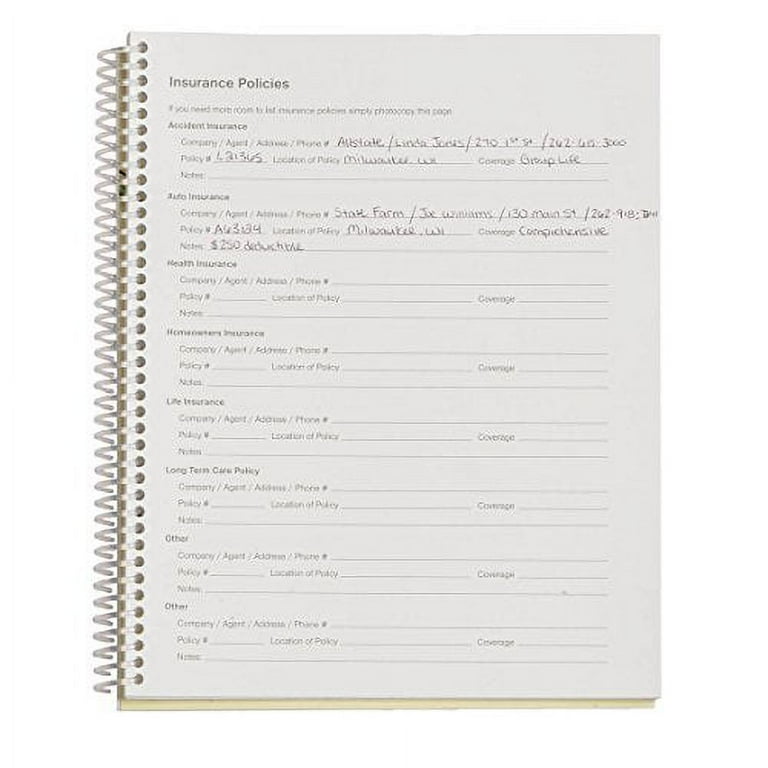 Insurance Policies
If you need more room to list insurance policies simply photocopy this page
Accident Insurance
Company / Agent / Address / Phone # Allstate / Linda Jones / 270 1st St / 262-615-3000
Policy # L21365 Location of Policy Milwaukee, WI Coverage Group Life
Notes:
Auto Insurance
Company / Agent / Address / Phone # State Farm / Joe Williams / 130 Main St / 262-918-
Policy # A63134 Location of Policy Milwaukee, WI Coverage Comprehensive
Notes: $250 deductible
Health Insurance
Company / Agent / Address / Phone #
Policy # Location of Policy Coverage
Notes:
Homeowners Insurance
Company / Agent / Address / Phone #
Policy # Location of Policy Coverage
Notes:
Life Insurance
Company / Agent / Address / Phone #
Policy # Location of Policy Coverage
Notes:
Long Term Care Policy
Company / Agent / Address / Phone #
Policy # Location of Policy Coverage
Notes:
Other
Company / Agent / Address / Phone #
Policy # Location of Policy Coverage
Notes:
Other
Company / Agent / Address / Phone #
Policy # Location of Policy Coverage
Notes: